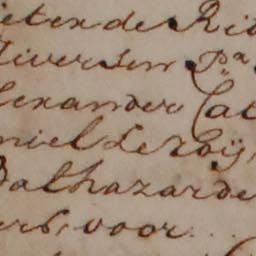 ieter de Rid
diversen Pn
lexander Cal
niel Leroij,
Balthazar de
ers, voor